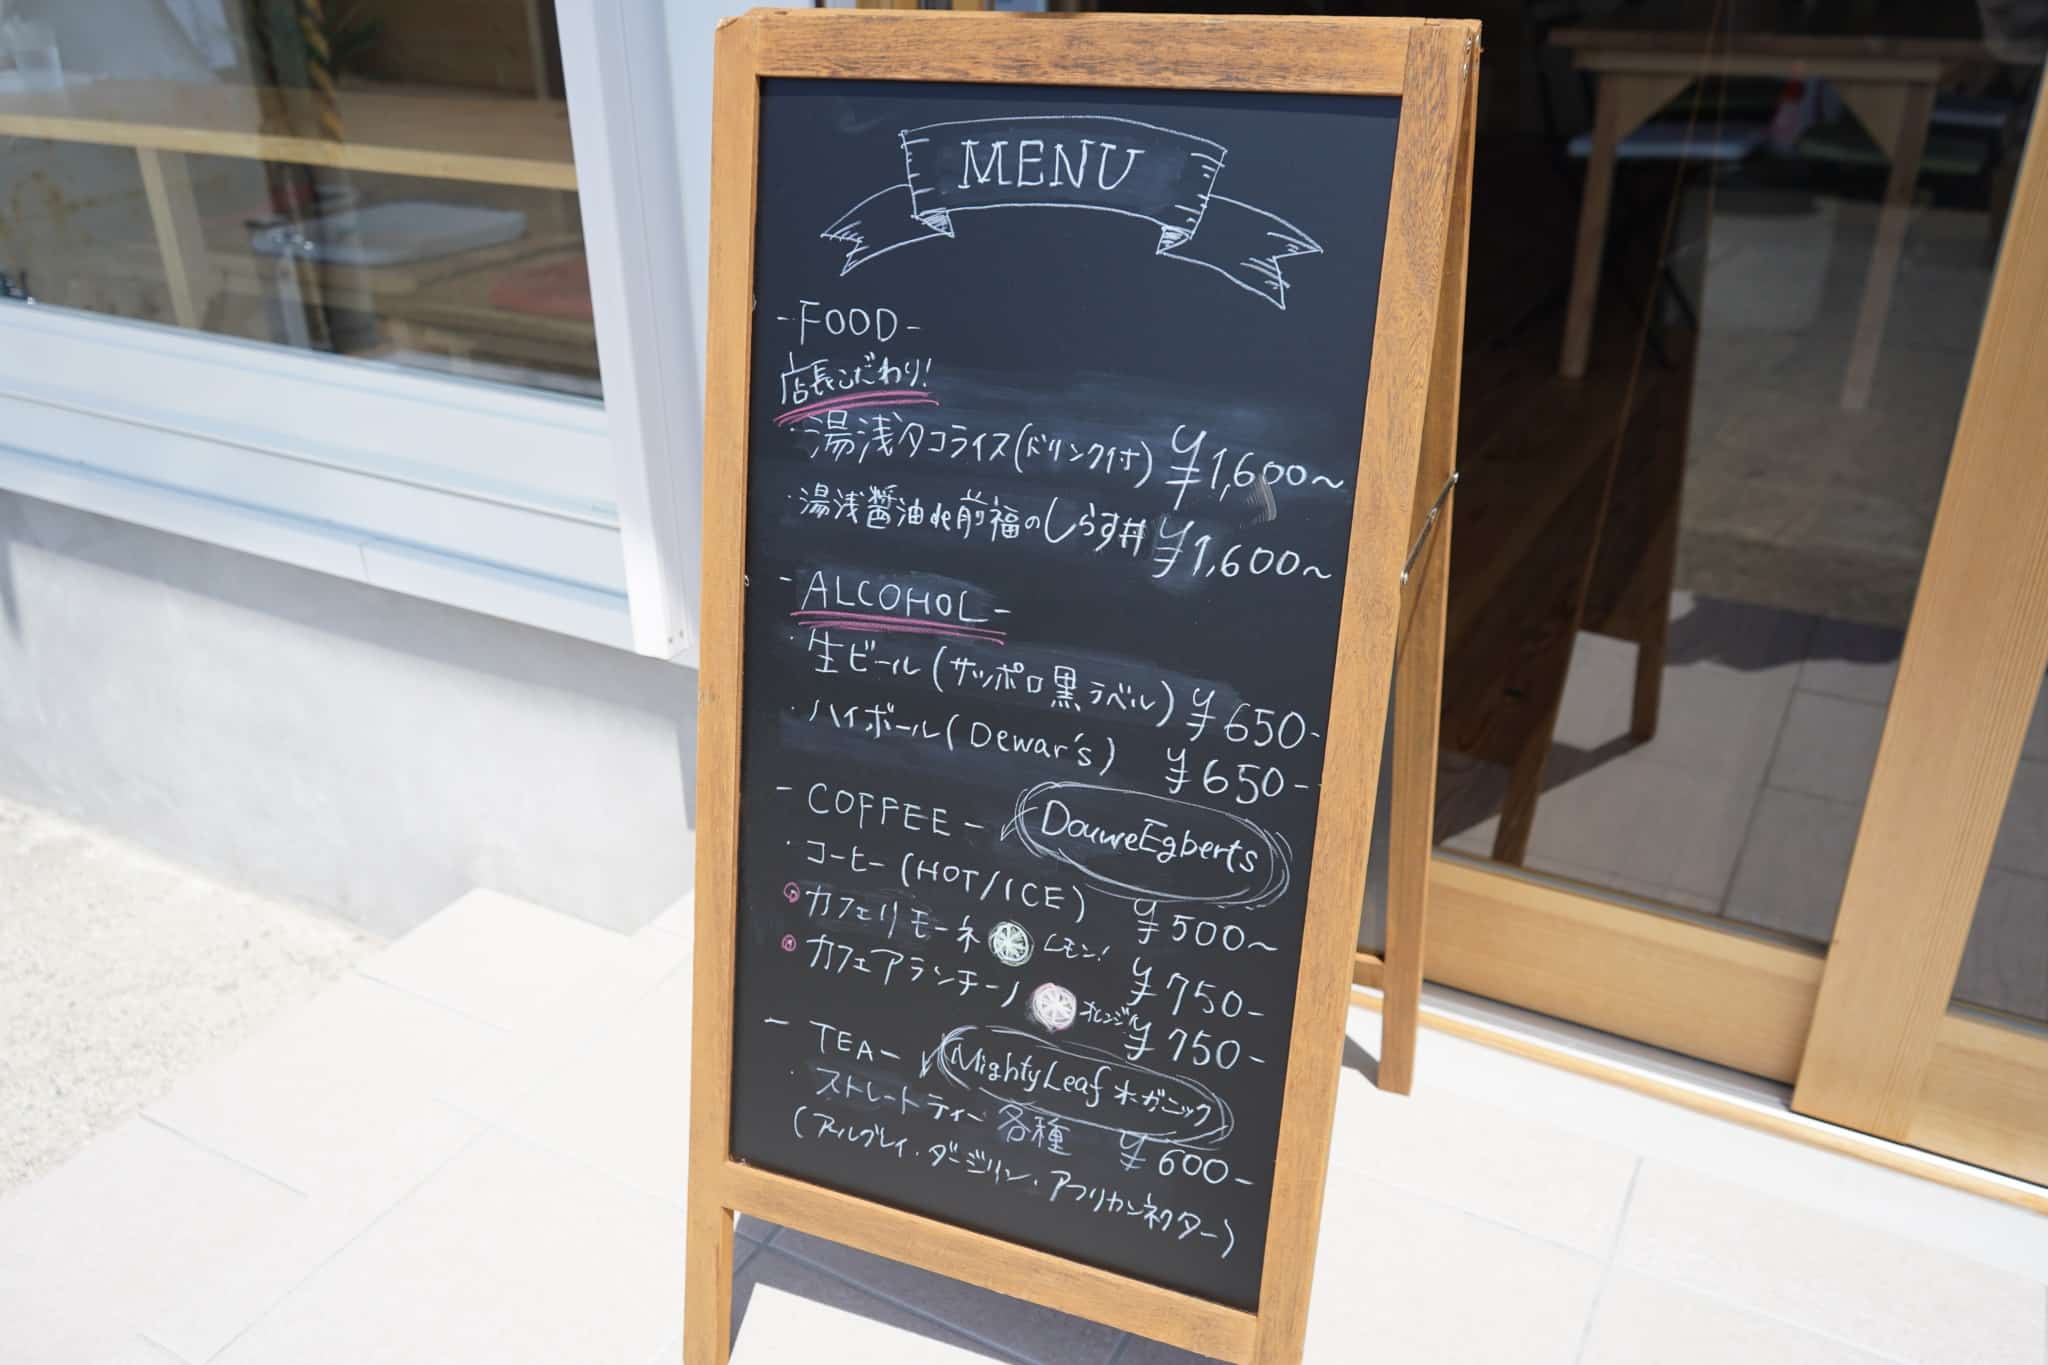 MENU
-FOOD-
店長こだわり!
・湯浅タコライス(ドリンク付) ¥1,600〜
・湯浅醤油de前福のしらす丼 ¥1,600〜
- ALCOHOL -
・生ビール(サッポロ黒ラベル) ¥650-
・ハイボール(Dewar's) ¥650-
- COFFEE - DouweEgberts
・コーヒー(HOT/ICE) ¥500〜
カフェリモーネ レモン! ¥750-
カフェアランチーノ オレンジ! ¥750-
- TEA - MightyLeaf オーガニック
・ストレートティー各種 ¥600-
(アールグレイ・ダージリン・アフリカンネクター)